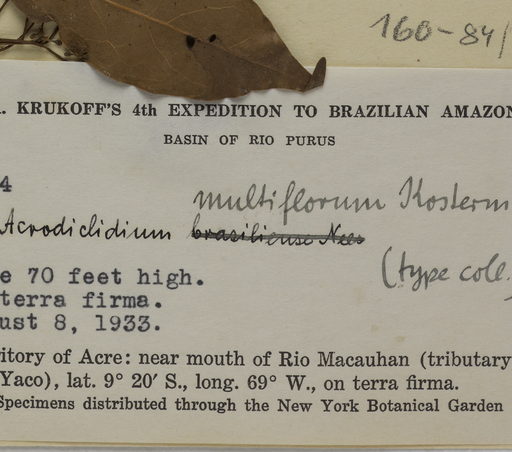 160-84/
. KRUKOFF'S 4th EXPEDITION TO BRAZILIAN AMAZON
BASIN OF RIO PURUS
4
multiflorum Kosterm
Acrodiclidium brasiliense Nees
(type coll.
e 70 feet high.
terra firma.
ust 8, 1933.
ritory of Acre: near mouth of Rio Macauhan (tributary
Yaco), lat. 9° 20′ S., long. 69° W., on terra firma.
Specimens distributed through the New York Botanical Garden